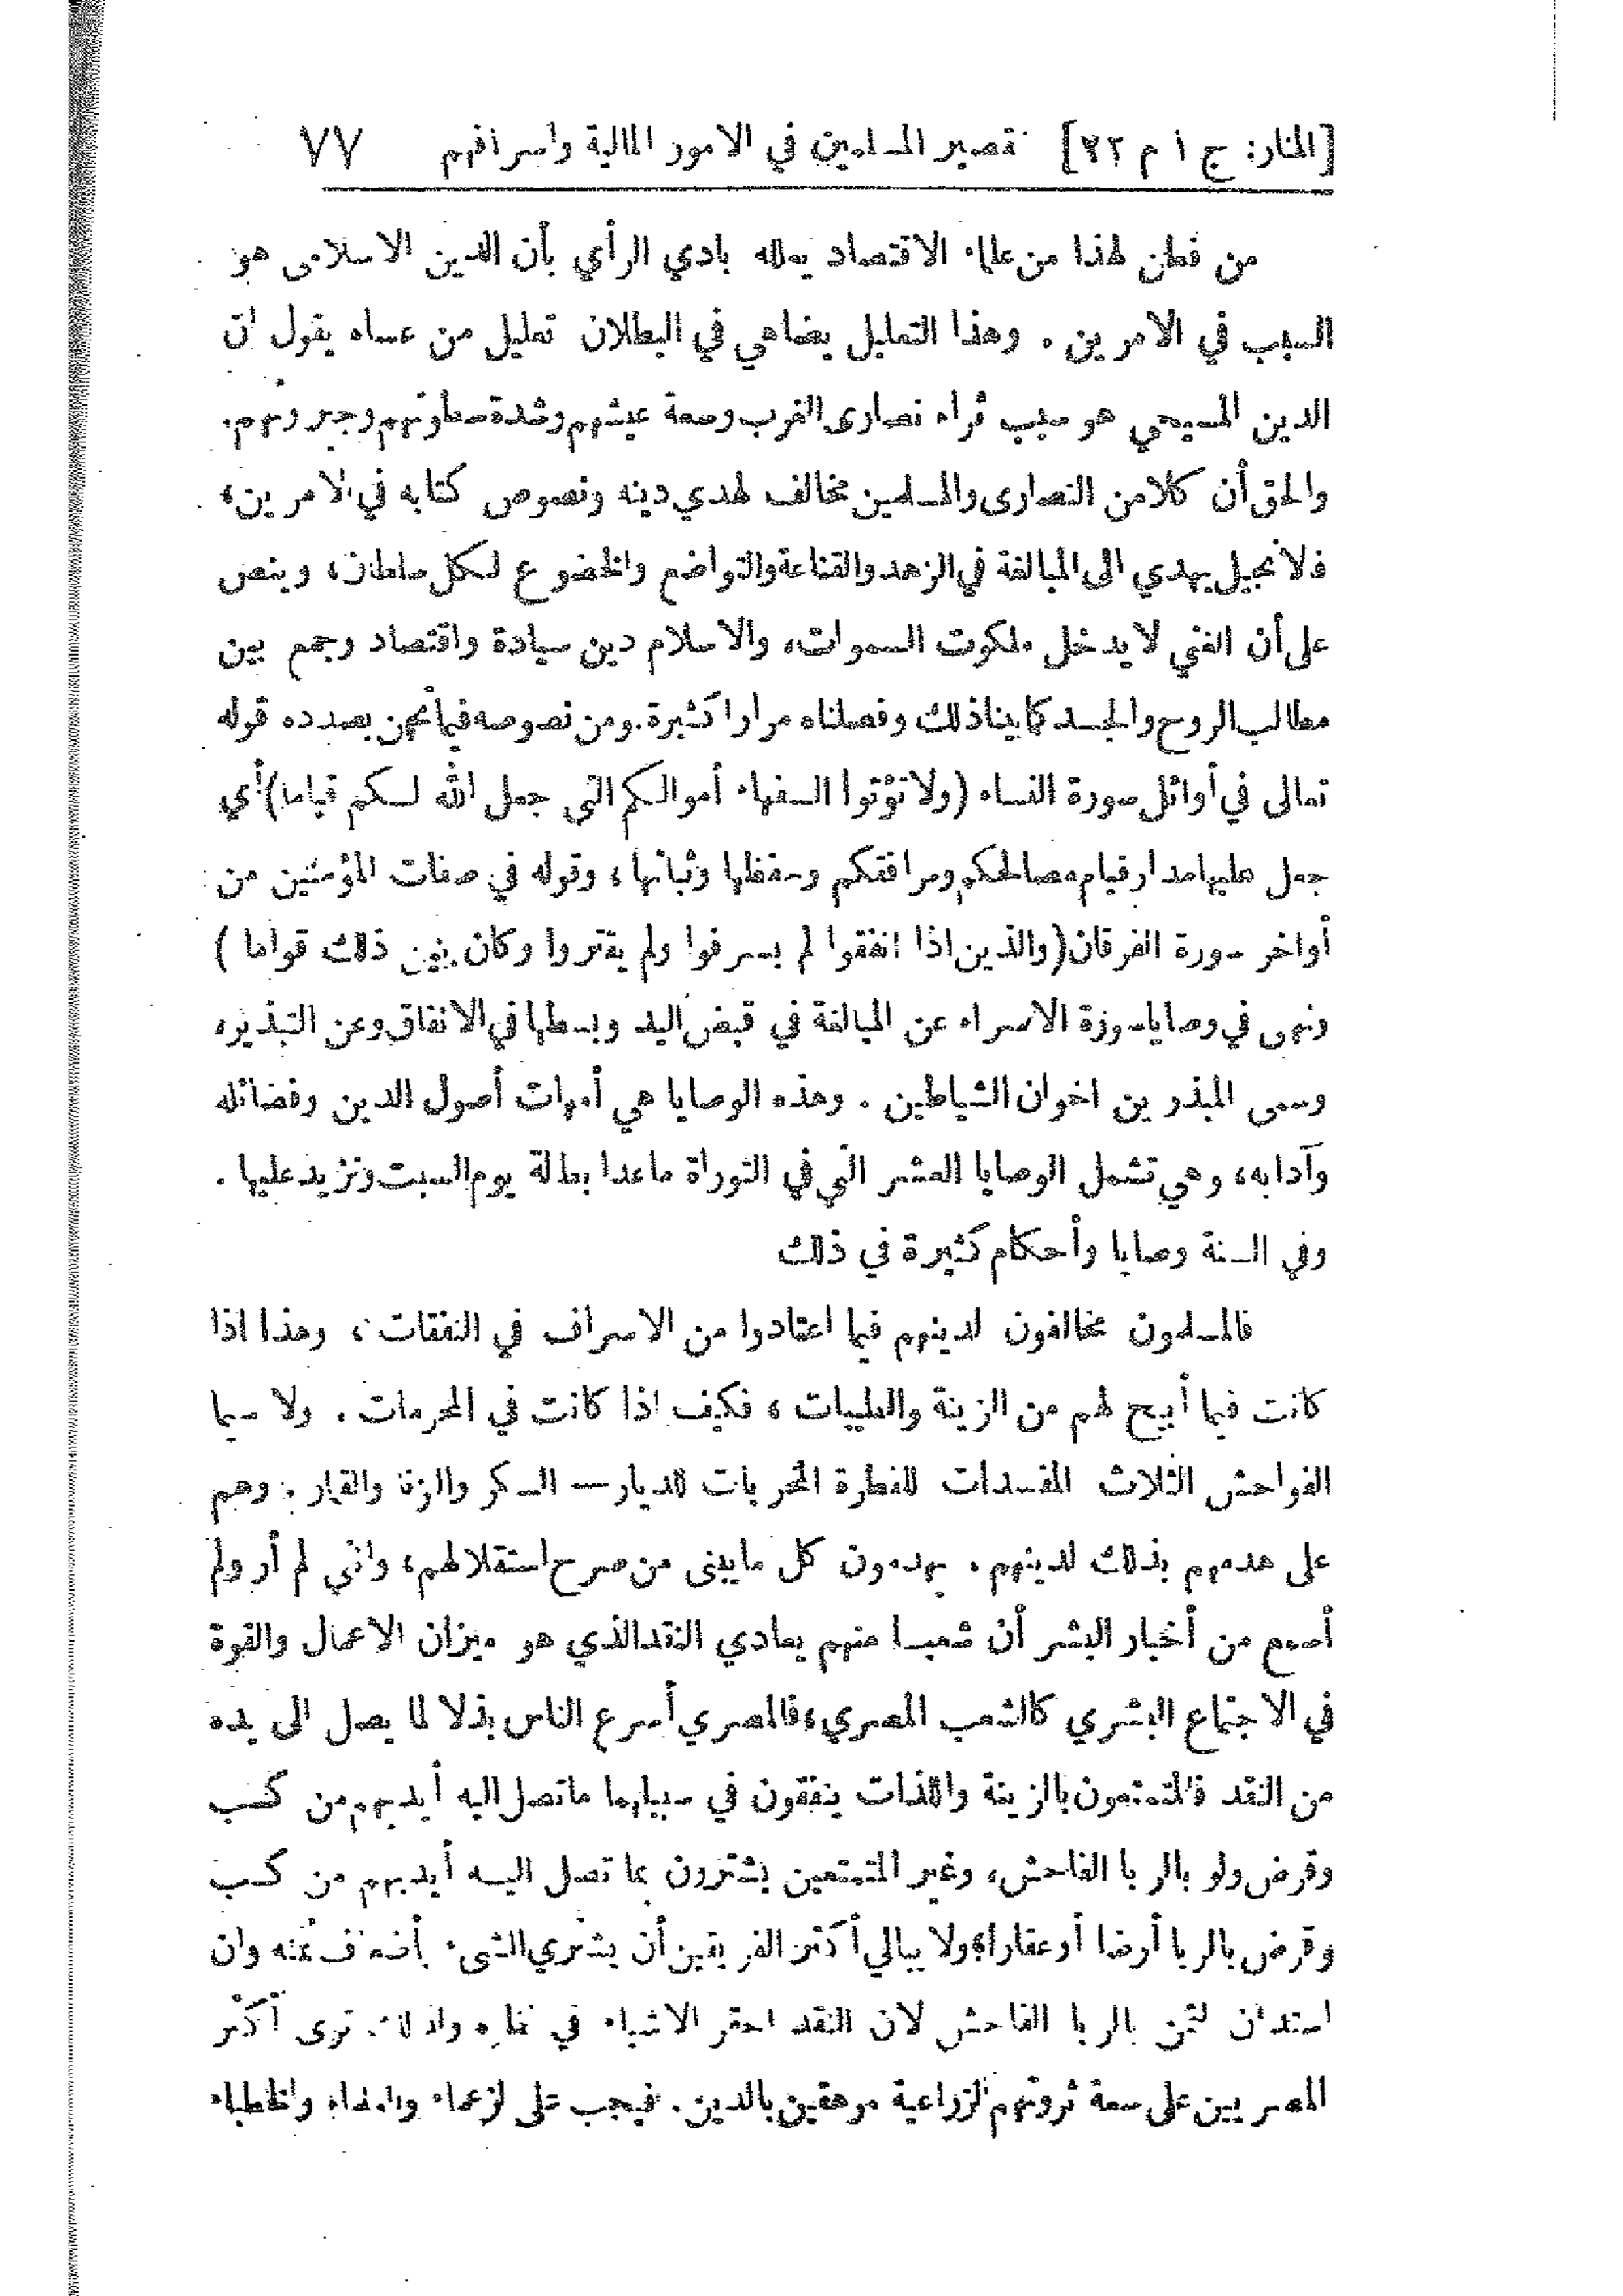 [المنار: ج ١ م ٢٢] تقصير المسلمين في الامور المالية واسرافهم ٧٧
من فطن لهذا من علماء الاقتصاد يعلله بادي الرأي بأن الدين الاسلامى هو
السبب في الامرين . وهذا التعليل يضاهي في البطلان تعليل من عساه يقول ان
الدين المسيحي هو سبب ثراء نصارى الغرب وسعة عيشهم وشدة سطوتهم وجبروتهم.
والحق أن كلا من النصارى والمسلمين مخالف لهدي دينه ونصوص كتابه في الامرين،
فالانجيل يهدي الى المبالغة في الزهد والقناعة والتواضع والخضوع لكل سلطان، وينص
على أن الغني لا يدخل ملكوت السموات، والاسلام دين سيادة واقتصاد وجمع بين
مطالب الروح والجسد كما بينا ذلك وفصلناه مرارا كثيرة. ومن نصوصه فيما نحن بصدده قوله
تعالى في أوائل سورة النساء (ولا تؤتوا السفهاء أموالكم التي جعل الله لكم قياما) أي
جعل عليها مدار قيام مصالحكم ومرافقكم وحفظها وثباتها، وقوله في صفات المؤمنين من
أواخر سورة الفرقان (والذين اذا انفقوا لم يسرفوا ولم يقتروا وكان بين ذلك قواما )
ونهى في وصايا سورة الاسراء عن المبالغة في قبض اليد وبسطها في الانفاق وعن التبذير،
وسمى المبذرين اخوان الشياطين . وهذه الوصايا هي أمهات أصول الدين وفضائله
وآدابه، وهي تشمل الوصايا العشر التي في التوراة ماعدا بطالة يوم السبت وتزيد عليها .
وفي السنة وصايا وأحكام كثيرة في ذلك
فالمسلمون مخالفون لدينهم فيما اعتادوا من الاسراف في النفقات ، وهذا اذا
كانت فيما أبيح لهم من الزينة والطيبات ، فكيف اذا كانت في المحرمات . ولا سيما
الفواحش الثلاث المفسدات للفطرة المخربات للديار — السكر والزنا والقمار . وهم
على هدمهم بذلك لدينهم . يهدمون كل ما يبنى من صرح استقلالهم، واني لم أر ولم
أسمع من أخبار البشر أن شعبا منهم يعادي النقد الذي هو ميزان الاعمال والقوة
في الاجتماع البشري كالشعب المصري، فالمصري أسرع الناس بذلا لما يصل الى يده
من النقد فالمتمتعون بالزينة واللذات ينفقون في سبيلهما ما تصل اليه أيديهم من كسب
وقرض ولو بالربا الفاحش، وغير المتمتعين يشترون بما تصل اليـه أيديهم من كسب
وقرض بالربا أرضا أو عقارا، ولا يبالي أكثر الفريقين أن يشتري الشيء بأضعاف ثمنه وان
استدان الثمن بالربا الفاحش لان النقد احقر الاشياء في نظره ولذلك ترى أكثر
المصريين على سعة ثروتهم الزراعية مرهقين بالدين. فيجب على الزعماء والعلماء والخطباء